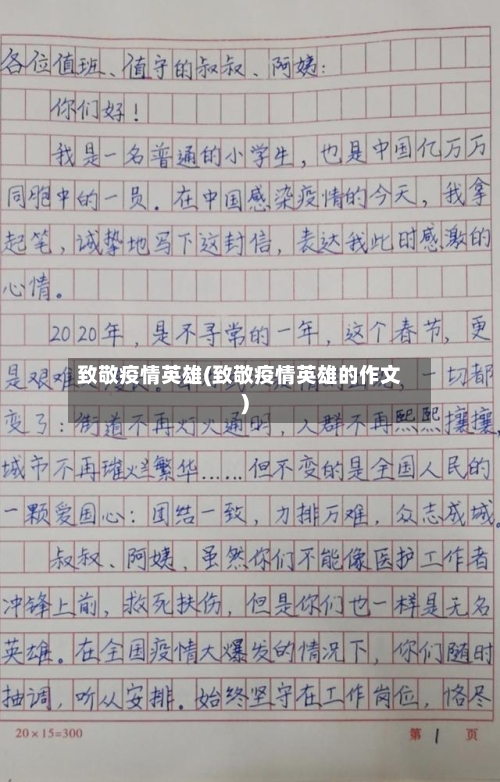 各位值班、值守的叔叔、阿姨:
你们好!
我是一名普通的小学生,也是中国亿万万
同胞中的一员。在中国感染疫情的今天,我拿
起笔,诚挚地写下这封信,表达我此时感激的
心情。
2020年,是不寻常的一年,这个春节,更
是艰难 一切都
致敬疫情英雄(致敬疫情英雄的作文
)
变了:街道不再灯火通明,人群不再熙熙攘攘,
城市不再璀烂繁华……但不变的是全国人民的
一颗爱国心:团结一致,力排万难,众志成城。
叔叔、阿姨,虽然你们不能像医护工作者
冲锋上前,救死扶伤,但是你们也一样是无名
英雄。在全国疫情大爆发的情况下,你们随时
抽调,听从安排。始终坚守在工作岗位,恪尽
20×15=300 第 1 页